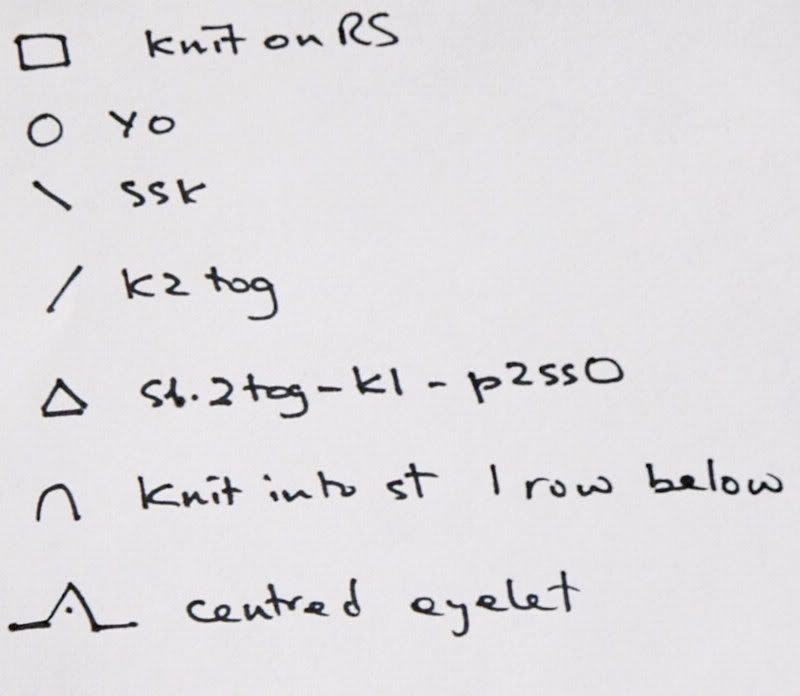 knit on RS
YO
SSK
K2 tog
sl.2tog-k1-p2ssO
knit into st 1 row below
centred eyelet